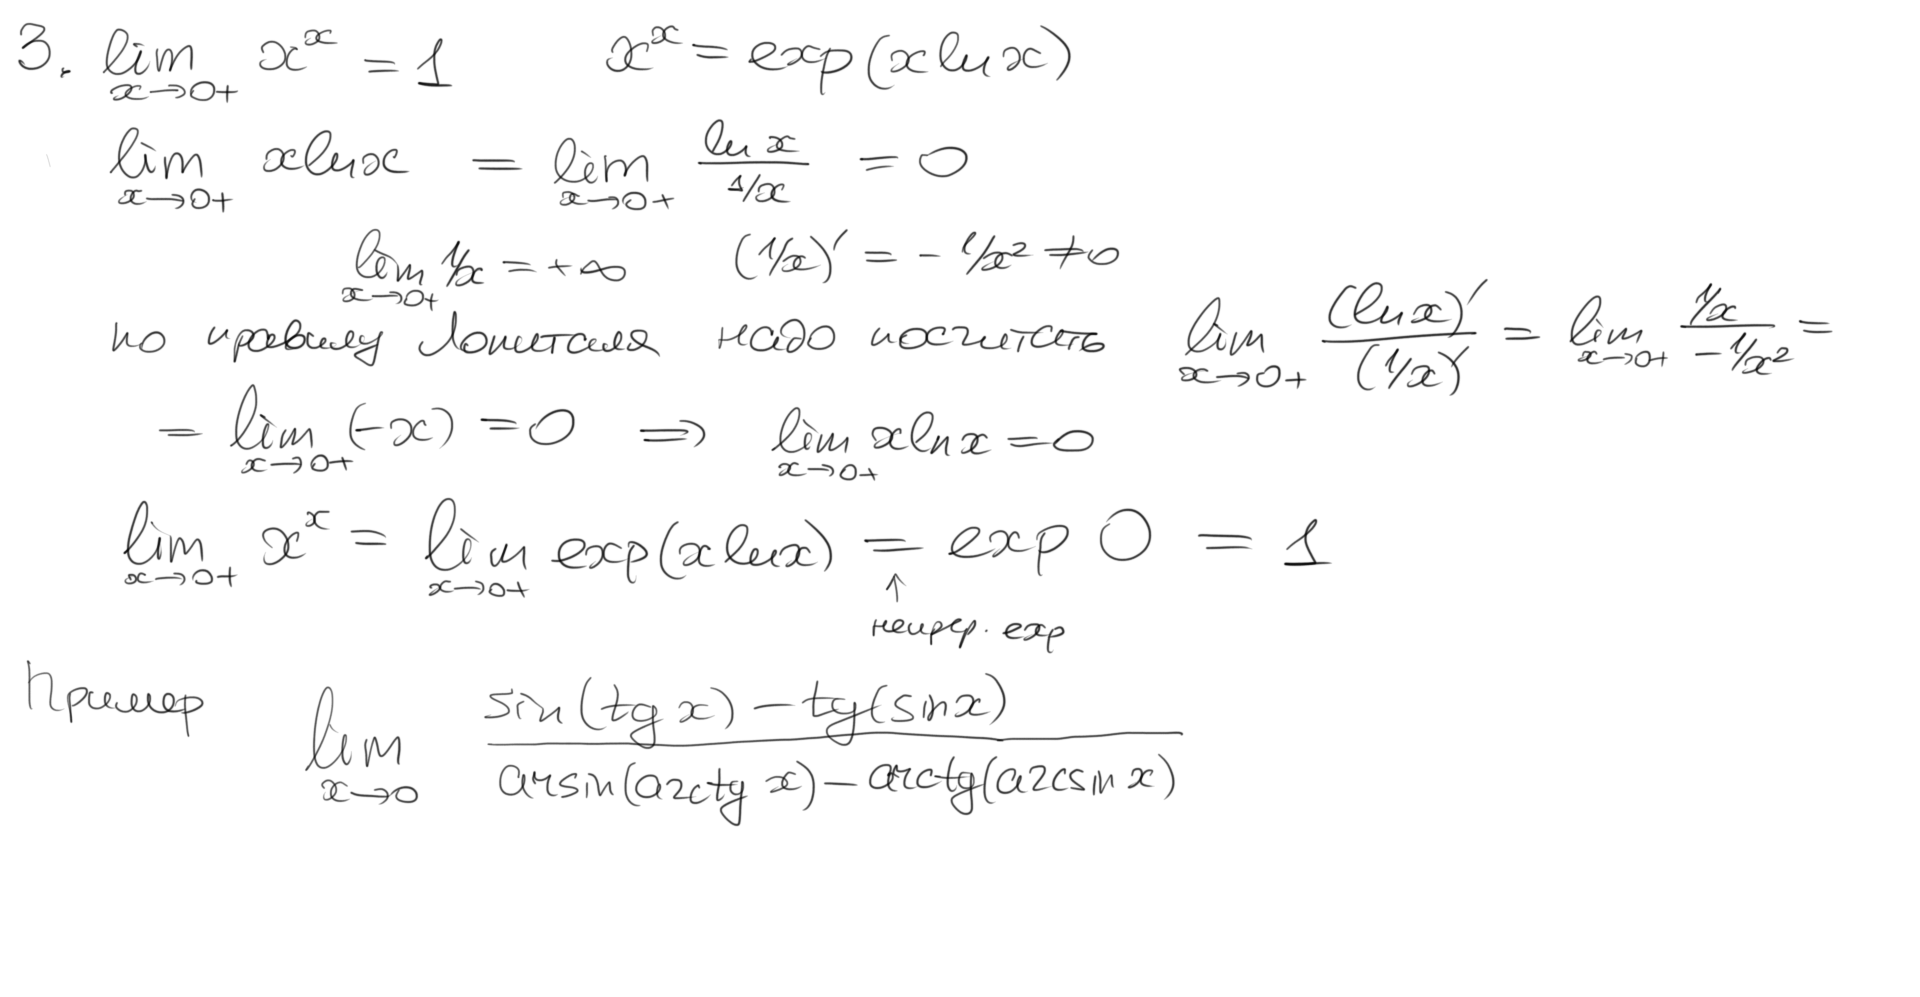 3. lim x→0+ x^x = 1 x^x = exp(x ln x)
lim x→0+ x ln x = lim x→0+ ln x / 1/x = 0
lim x→0+ 1/x = +∞ (1/x)' = - 1/x² ≠ 0
по правилу Лопиталя надо посчитать lim x→0+ (ln x)' / (1/x)' = lim x→0+ 1/x / -1/x² =
= lim x→0+ (-x) = 0 ⇒ lim x→0+ x ln x = 0
lim x→0+ x^x = lim x→0+ exp(x ln x) = exp 0 = 1
↑
непрер. exp
Пример lim x→0 sin(tg x) - tg(sin x) / arsin(arctg x) - arctg(arcsin x)